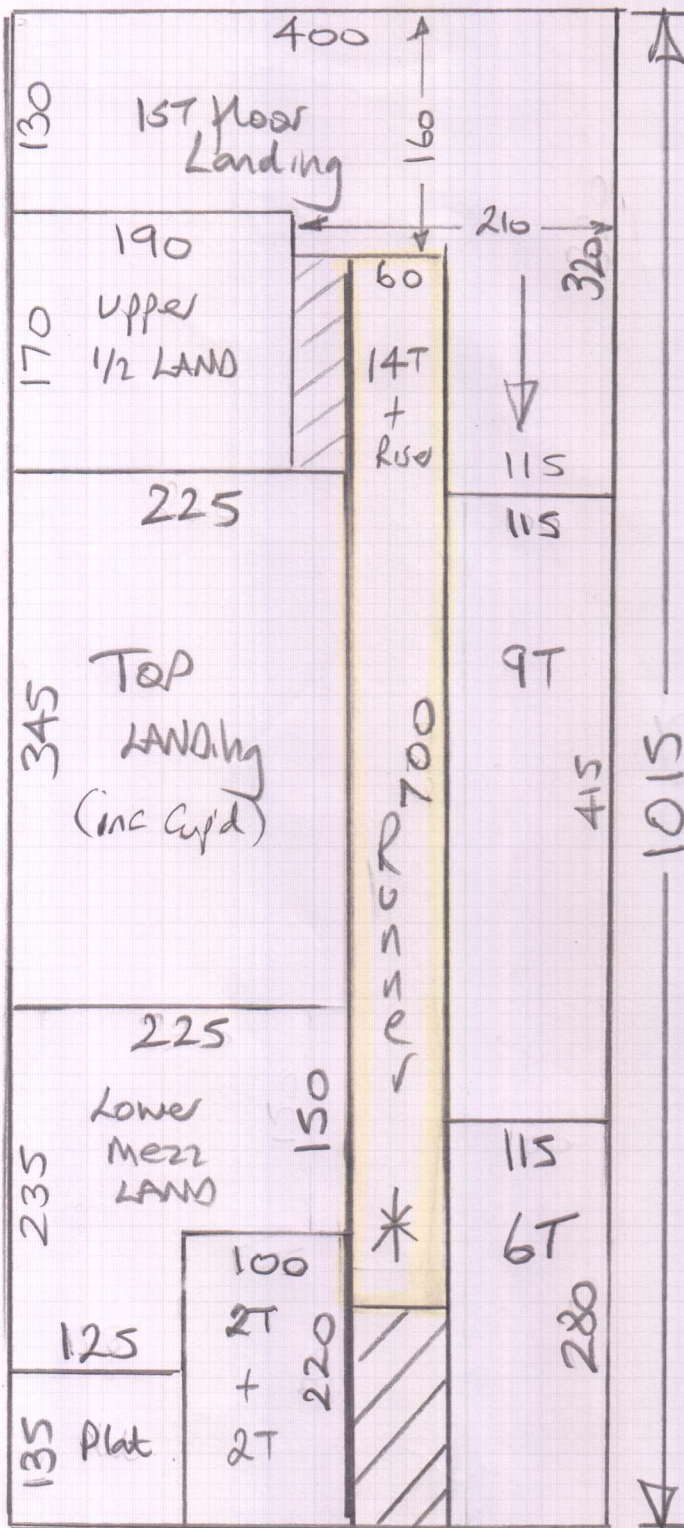 400
130
1ST floor
Landing
160
210
320
190
upper
1/2 LAND
170
60
14T
+
Riser
115
115
225
TOP
LANDing
(inc Cup'd)
345
9T
700
Runner
415
1015
225
Lower
Mezz
LAND
150
235
115
6T
280
100
2T
+
2T
220
125
135
Plat